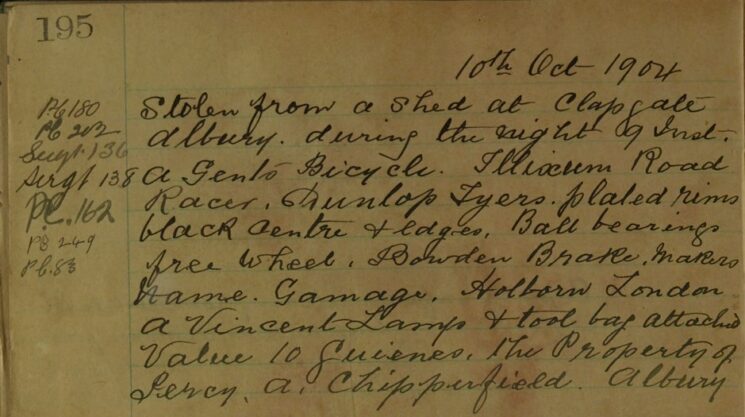 195
10th Oct 1904
Pc 180
Pc 202
Sergt 136
Sergt 138
P.C. 162
Pc 249
Pc. 83
Stolen from a shed at Clapgate
Albury. during the night 9 Inst.
a Gents Bicycle. Road
Racer. Dunlop Tyers. plated rims
black centre & edges. Ball bearings
free wheel. Bowden Brake. Makers
Name. Gamage. Holborn London
a Vincent Lamp & tool bag attached
Value 10 Guienes. the Property of
Percy. A. Chipperfield. Albury